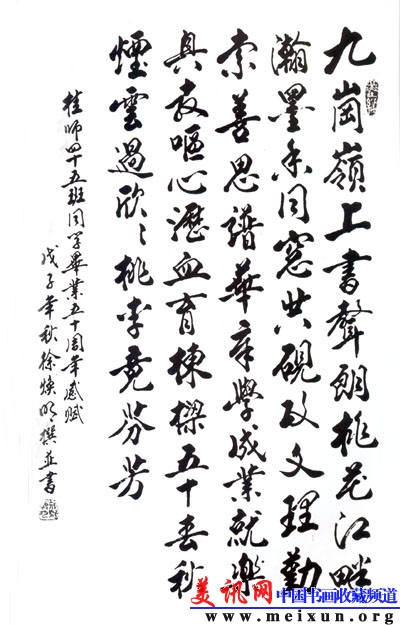 九崗嶺上書聲朗桃花江畔
瀚墨香同窓共硯攻文理勤
索善思譜華章學成業就樂
教嘔心瀝血育棟樑五十春秋
煙雲過欣〻桃李竟芬芳
桂師四十五班同學畢業五十周年感賦
戊子年秋徐煥明撰並書
美讯网
中国书画收藏频道
www.meixun.org